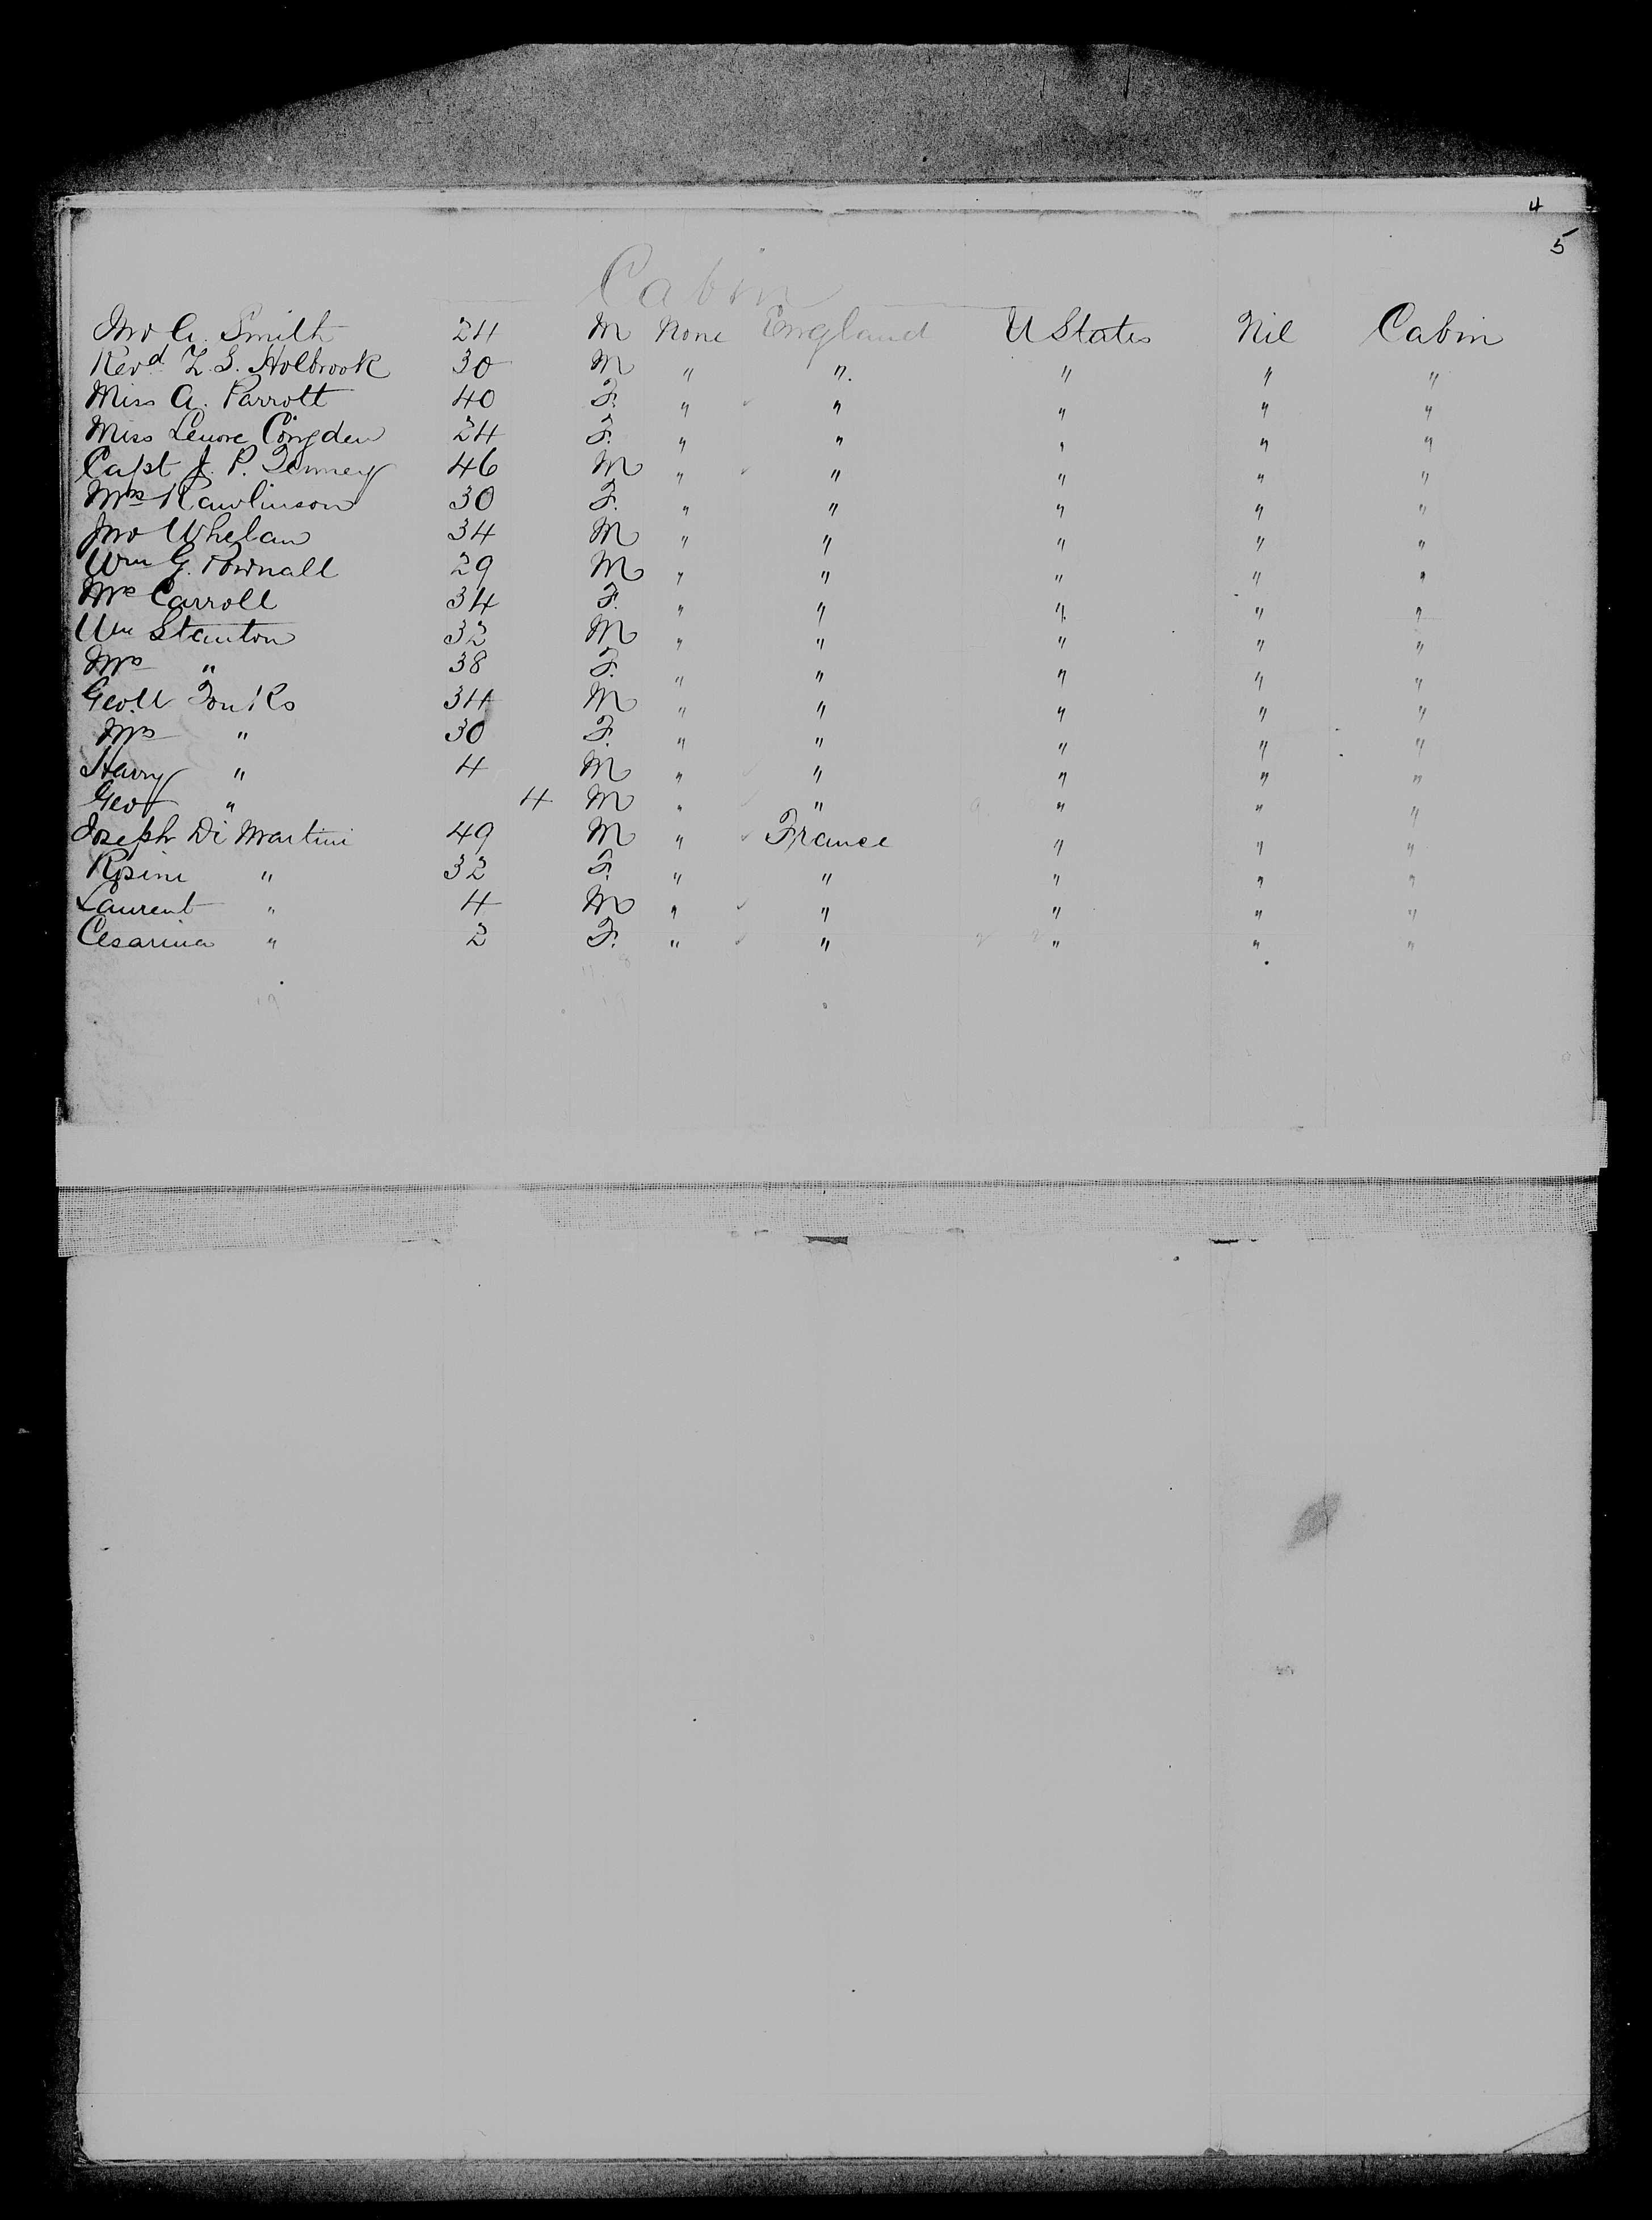 4
5
Cabin
Jno A. Smith 24 M None England U States Nil Cabin
Revd Z. S. Holbrook 30 M " " " " "
Miss A. Parrott 40 F. " " " " "
Miss Lenore Congden 24 F. " " " " "
Capt J. P. Tenney 46 M " " " " "
Mrs Rawlinson 30 F. " " " " "
Jno Whelan 34 M " " " " "
Wm G. Pownall 29 M " " " " "
Mrs Carroll 34 F. " " " " "
Wm Stanton 32 M " " " " "
Mrs " 38 F. " " " " "
Geo. Tonks 34 M " " " " "
Mrs " 30 F. " " " " "
Harry " 4 M " " " " "
Geo " 4 M " " " " "
Joseph Di Martini 49 M " France " " "
Rosine " 32 F. " " " " "
Laurent " 4 M " " " " "
Cesarina " 2 F. " " " " "
11 8
19 19